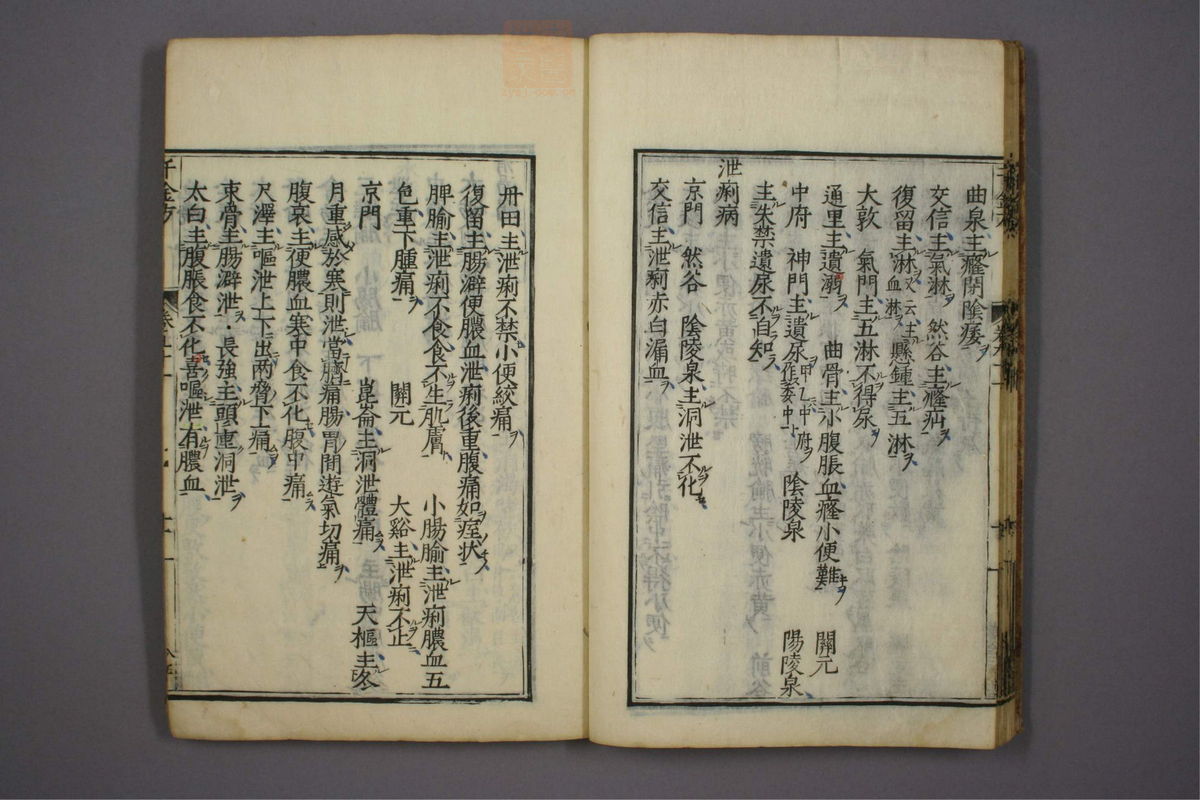 曲泉主癃閉陰痿
交信主氣淋　然谷主癃疝
復留主淋又云主血淋　懸鍾主五淋
大敦　氣門主五淋不得尿
通里主遺溺　曲骨主小腹脹血癃小便難　關元
中府　神門主遺尿甲乙中府作委中　陰陵泉　陽陵泉
主失禁遺尿不自知
泄痢病
京門　然谷　陰陵泉主洞泄不化
交信主泄痢赤白漏血
丹田主泄痢不禁小便絞痛
復留主腸澼便膿血泄痢後重腹痛如痓状
脾腧主泄痢不食食不生肌膚　小腸腧主泄痢膿血五
色重下腫痛　關元　大谿主泄痢不止
京門　崑崙主洞泄體痛　天樞主冬
月重感於寒則泄當臍痛腸胃間遊氣切痛
腹哀主便膿血寒中食不化腹中痛
尺澤主嘔泄上下出兩脅下痛
束骨主腸澼泄・長強主頭重洞泄
太白主腹脹食不化喜嘔泄有膿血
千金方